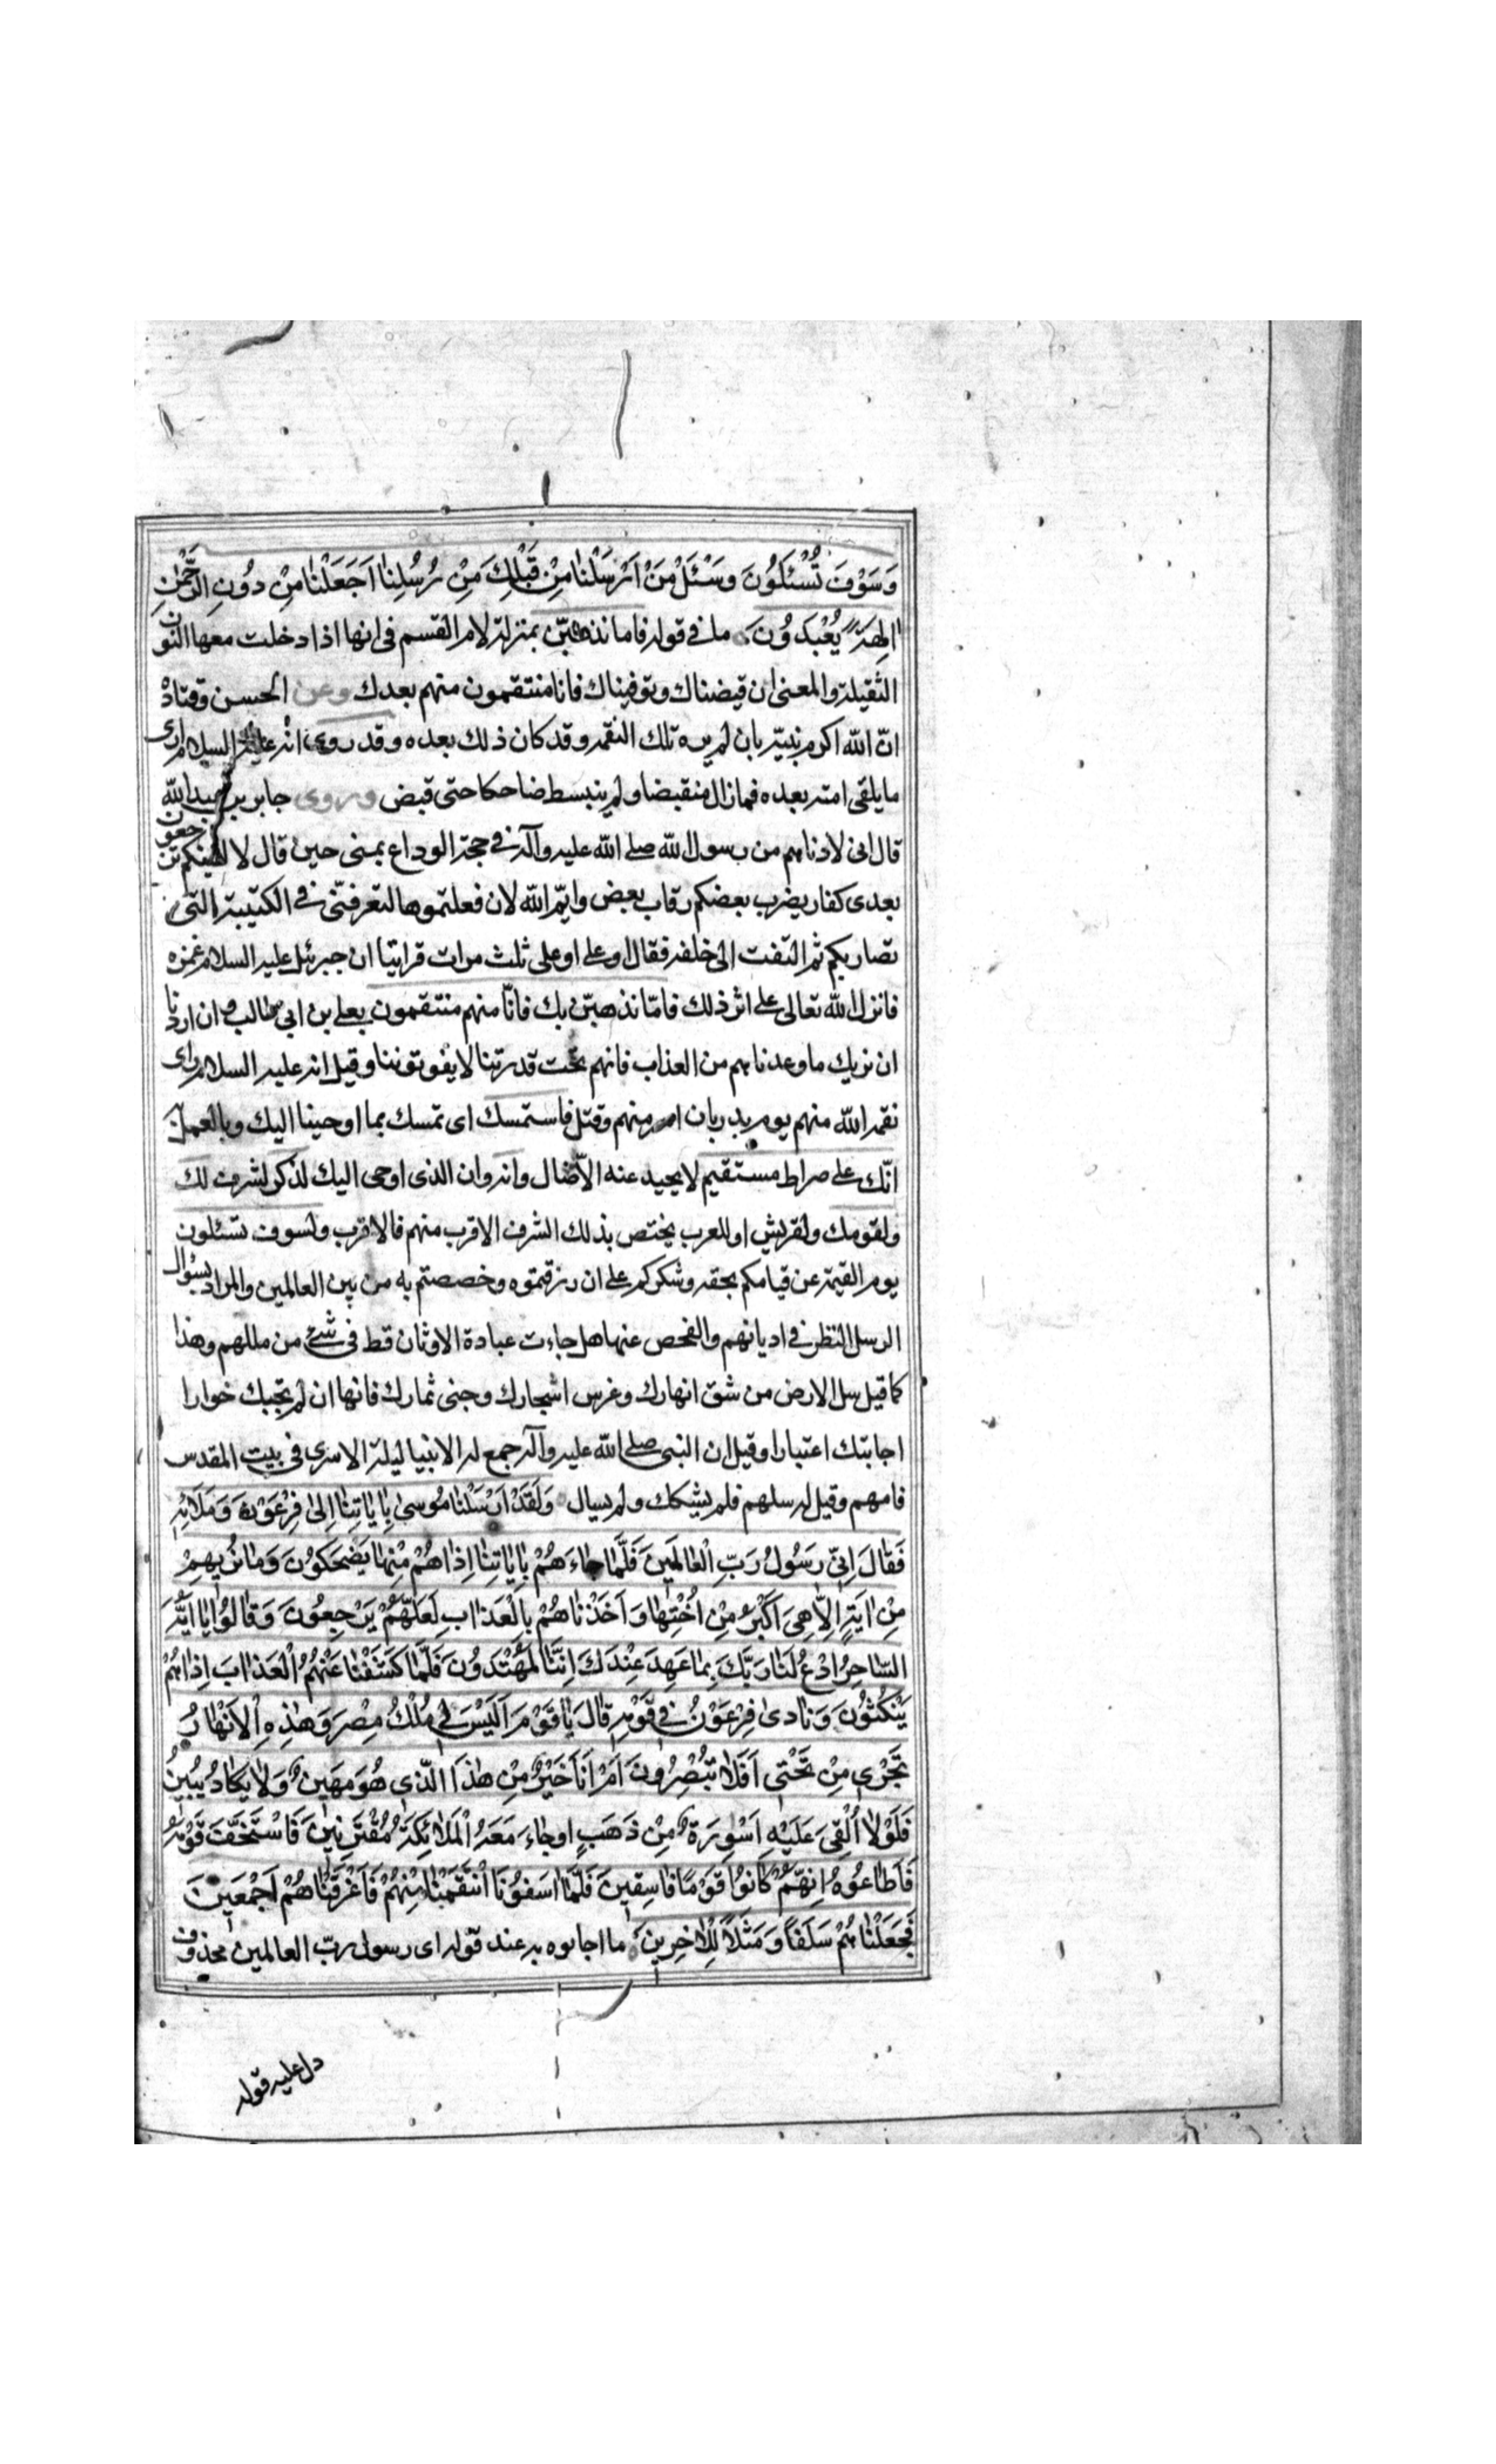 وَسَوْفَ تُسْئَلُونَ وَسْئَلْ مَنْ اَرْسَلْنَا مِنْ قَبْلِكَ مِنْ رُسُلِنَا اَجَعَلْنَا مِنْ دُونِ الرَّحْمٰنِ
اٰلِهَةً يُعْبَدُونَ ما في قوله فاما نذهبنّ بمنزلة لام القسم فى انها اذا دخلت معها النون
الثقيلة والمعنى ان قبضناك وتوفيناك فانا منتقمون منهم بعدك وعن الحسن وقتادة
انّ الله اكرم نبيّه بان لم يره تلك النقمة وقد كان ذلك بعده وقد روى انّه عليه السلام ارى
ما يلقى امته بعده فما زال منقبضا ولم ينبسط ضاحكا حتى قبض وروى جابر بن عبد الله
قال انى لادناهم من رسول الله صلى الله عليه وآله في حجة الوداع بمنى حين قال لا الفينكم ترجعون
بعدى كفار يضرب بعضكم رقاب بعض وايّم الله لان فعلتموها لتعرفنّى في الكتيبة التى
تضاربكم ثم التفت الى خلفه فقال او على او على ثلث مرات فراينا ان جبرئيل عليه السلام غمزه
فانزل الله تعالى على اثر ذلك فامّا نذهبنّ بك فانّا منهم منتقمون بعلى بن ابى طالب وان اردنا
ان نريك ما وعدناهم من العذاب فانهم تحت قدرتنا لا يفوتوننا وقيل انه عليه السلام راى
نقمة الله منهم يوم بدر بان اسر منهم وقتل فاستمسك اى تمسك بما اوحينا اليك وبالعمل به
انّك على صراط مستقيم لا يحيد عنه الاّ ضال وانه وان الذى اوحى اليك لذكر لشرف لك
ولقومك ولقريش او للعرب يختص بذلك الشرف الاقرب منهم فالاقرب ولسوف تسئلون
يوم القيمة عن قيامكم بحقه وشكركم على ان رزقتموه وخصصتم به من بين العالمين والمراد بسؤال
الرسل النظر في اديانهم والفحص عنها هل جاءت عبادة الاوثان قط فى شئ من مللهم وهذا
كما قيل سل الارض من شق انهارك وغرس اشجارك وجنى ثمارك فانها ان لم تجبك خوارا
اجابتك اعتبارا وقيل ان النبى صلى الله عليه وآله جمع له الانبيا ليلة الاسرى فى بيت المقدس
فامهم وقيل له سلهم فلم يشكك ولم يسال وَلَقَدْ اَرْسَلْنَا مُوسىٰ بِاٰيَاتِنَا اِلىٰ فِرْعَوْنَ وَمَلَائِهِ
فَقَالَ اِنّى رَسُولُ رَبِّ الْعَالَمِينَ فَلَمَّا جَاءَهُمْ بِاٰيَاتِنَا اِذَا هُمْ مِنْهَا يَضْحَكُونَ وَمَا نُرِيهِمْ
مِنْ اٰيَةٍ اِلاَّ هِىَ اَكْبَرُ مِنْ اُخْتِهَا وَاَخَذْنَاهُمْ بِالْعَذَابِ لَعَلَّهُمْ يَرْجِعُونَ وَقَالُوا يَا اَيُّهَ
السَّاحِرُ ادْعُ لَنَا رَبَّكَ بِمَا عَهِدَ عِنْدَكَ اِنَّنَا لَمُهْتَدُونَ فَلَمَّا كَشَفْنَا عَنْهُمُ الْعَذَابَ اِذَا هُمْ
يَنْكُثُونَ وَنَادىٰ فِرْعَوْنُ فِى قَوْمِهِ قَالَ يَا قَوْمِ اَلَيْسَ لِى مُلْكُ مِصْرَ وَهٰذِهِ الْاَنْهَارُ
تَجْرِى مِنْ تَحْتِى اَفَلَا تُبْصِرُونَ اَمْ اَنَا خَيْرٌ مِنْ هٰذَا الَّذِى هُوَ مَهِينٌ وَلَا يَكَادُ يُبِينُ
فَلَوْلَا اُلْقِىَ عَلَيْهِ اَسْوِرَةٌ مِنْ ذَهَبٍ اوجَاءَ مَعَهُ الْمَلَائِكَةُ مُقْتَرِنِينَ فَاسْتَخَفَّ قَوْمَهُ
فَاَطَاعُوهُ اِنَّهُمْ كَانُوا قَوْمًا فَاسِقِينَ فَلَمَّا اٰسَفُونَا انْتَقَمْنَا مِنْهُمْ فَاَغْرَقْنَاهُمْ اَجْمَعِينَ
فَجَعَلْنَاهُمْ سَلَفًا وَمَثَلًا لِلْاٰخِرِينَ ما اجابوه به عند قوله اى رسول ربّ العالمين محذوف
دل عليه قوله